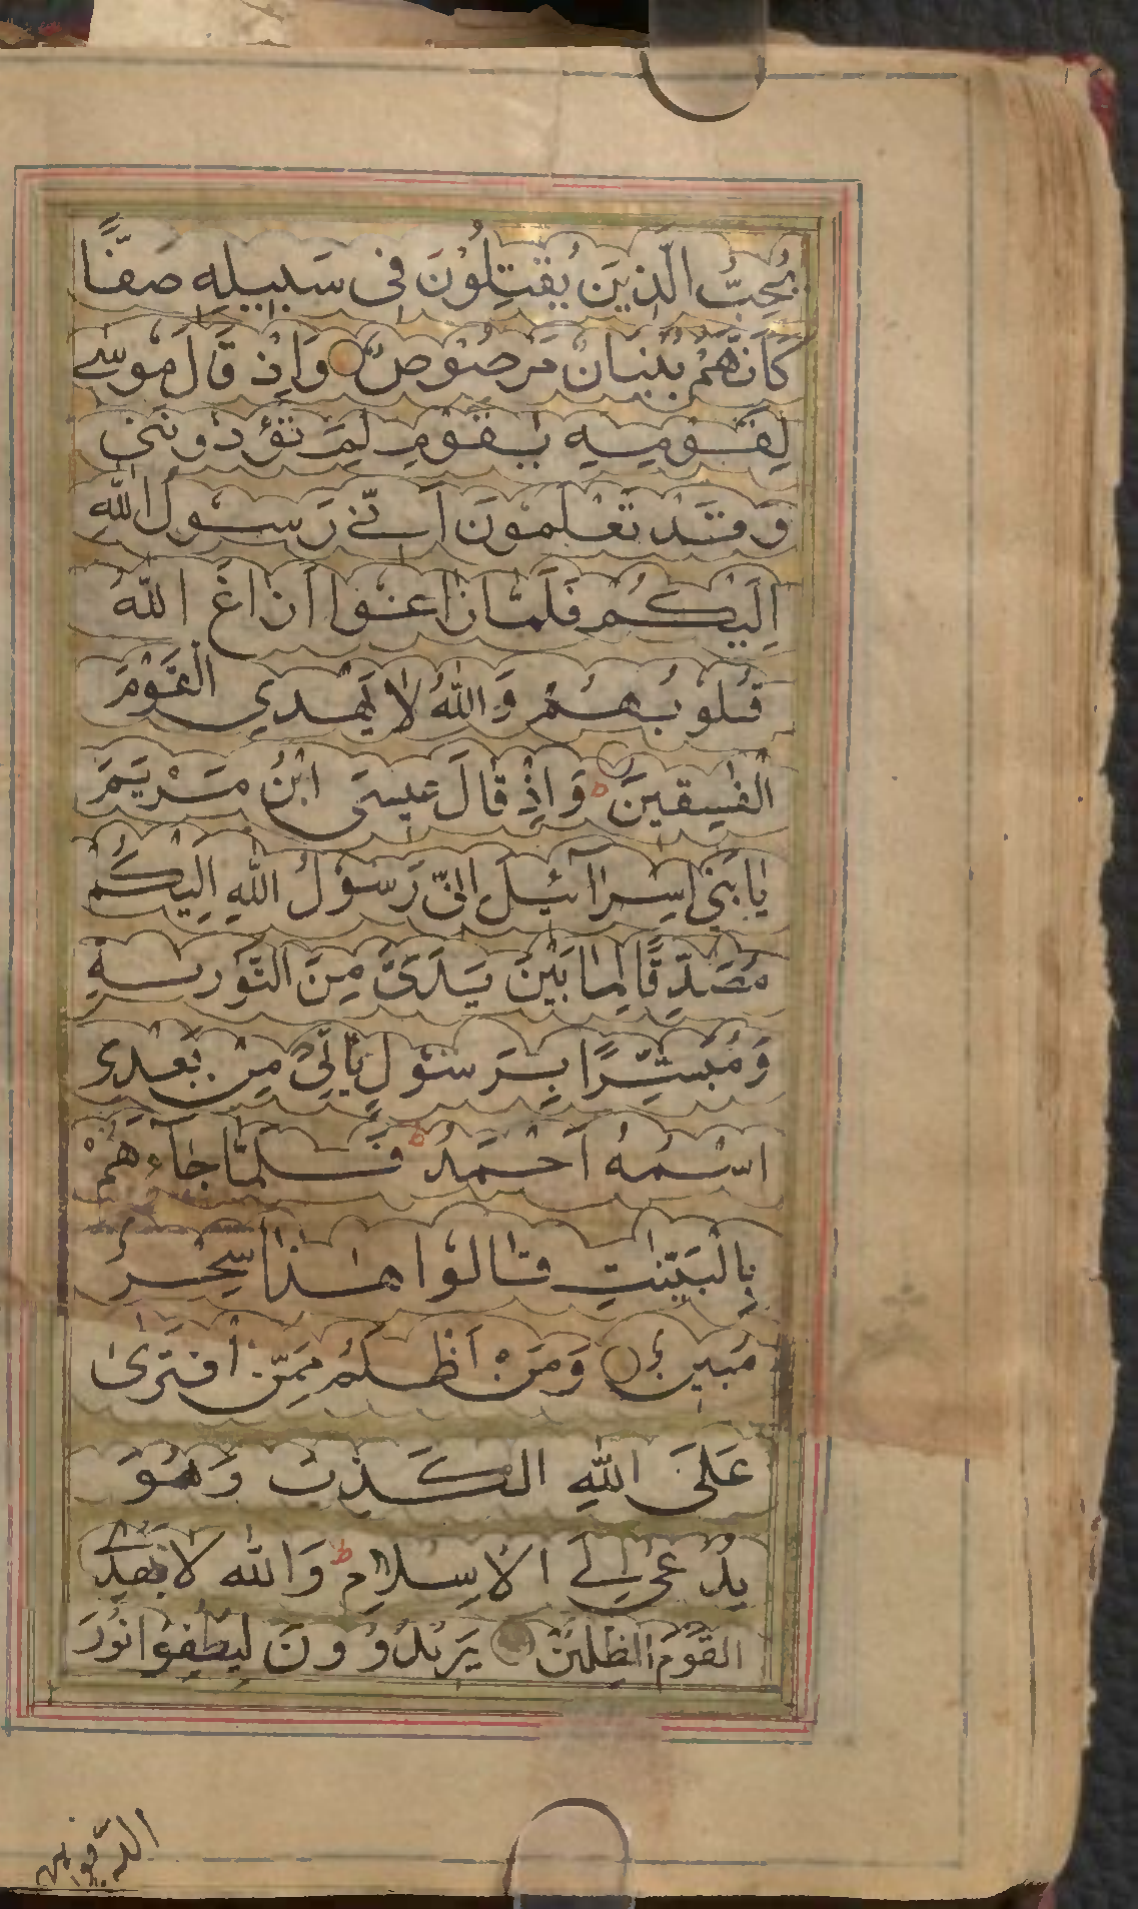 يُحِبُّ الَّذِينَ يُقٰتِلُوْنَ فِى سَبِيلِهِ صَفًّا
كَاَنَّهُمْ بُنْيَانٌ مَرْصُوْصٌ وَاِذْ قَالَ مُوسٰى
لِقَوْمِهِ يٰقَوْمِ لِمَ تُؤْذُونَنِى
وَقَدْ تَعْلَمُونَ اَنِّي رَسُولُ اللّٰهِ
اِلَيْكُمْ فَلَمَّا زَاغُوا اَزَاغَ اللّٰهُ
قُلُوبُهُمْ وَاللّٰهُ لَا يَهْدِي الْقَوْمَ
الْفٰسِقِينَ ط وَاِذْ قَالَ عِيسَى ابْنُ مَرْيَمَ
يٰا بَنِى اِسْرَآئِيلَ اِنِّى رَسُوْلُ اللّٰهِ اِلَيْكُمْ
مُصَدِّقًا لِمَا بَيْنَ يَدَىَّ مِنَ التَّوْرٰىةِ
وَمُبَشِّرًا بِرَسُوْلٍ يَّاْتِى مِنْ بَعْدِى
اسْمُهُ اَحْمَدُ ط فَلَمَّا جَآءَهُمْ
بِالْبَيِّنٰتِ قَالُوْا هٰذَا سِحْرٌ
مُبِينٌ وَمَنْ اَظْلَمُ مِمَّنِ افْتَرٰى
عَلَى اللّٰهِ الْكَذِبَ وَهُوَ
يُدْعٰى اِلَى الْاِسْلَامِ ط وَاللّٰهُ لَا يَهْدِى
الْقَوْمَ الظّٰلِمِيْنَ يَرِيْدُوْ وْنَ لِيُطْفِؤُا نُوْرَ
اللّٰهِ بِاَفْوَاهِهِمْ